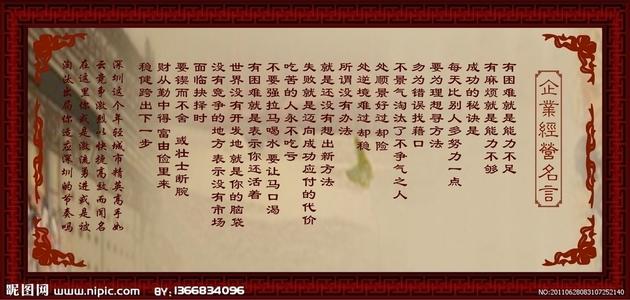 企業經營名言
有困难就是能力不足
有麻烦就是能力不够
成功的秘诀是
每天比别人多努力一点
要为理想寻方法
勿为错误找藉口
不景气淘汰了不争气之人
处顺景好过却险
处逆境难过却稳
所谓没有办法
就是还没有想出新方法
失败就是迈向成功应付的代价
吃苦的人永不吃亏
不要强拉马喝水要让马口渴
有困难就是表示你还活着
世界没有开发地就是你的脑袋
没有竞争的地方表示没有市场
面临抉择时
要锲而不舍 或壮士断腕
财从勤中得富由俭里来
稳健跨出下一步
深圳这个年轻城市精英高手如
云竞争激烈以快捷高效而闻名
在这里你或是激流勇进或是被
淘汰出局你适应深圳的节奏吗
昵图网 www.nipic.com BY:1366834096
NO:20110628083107252140